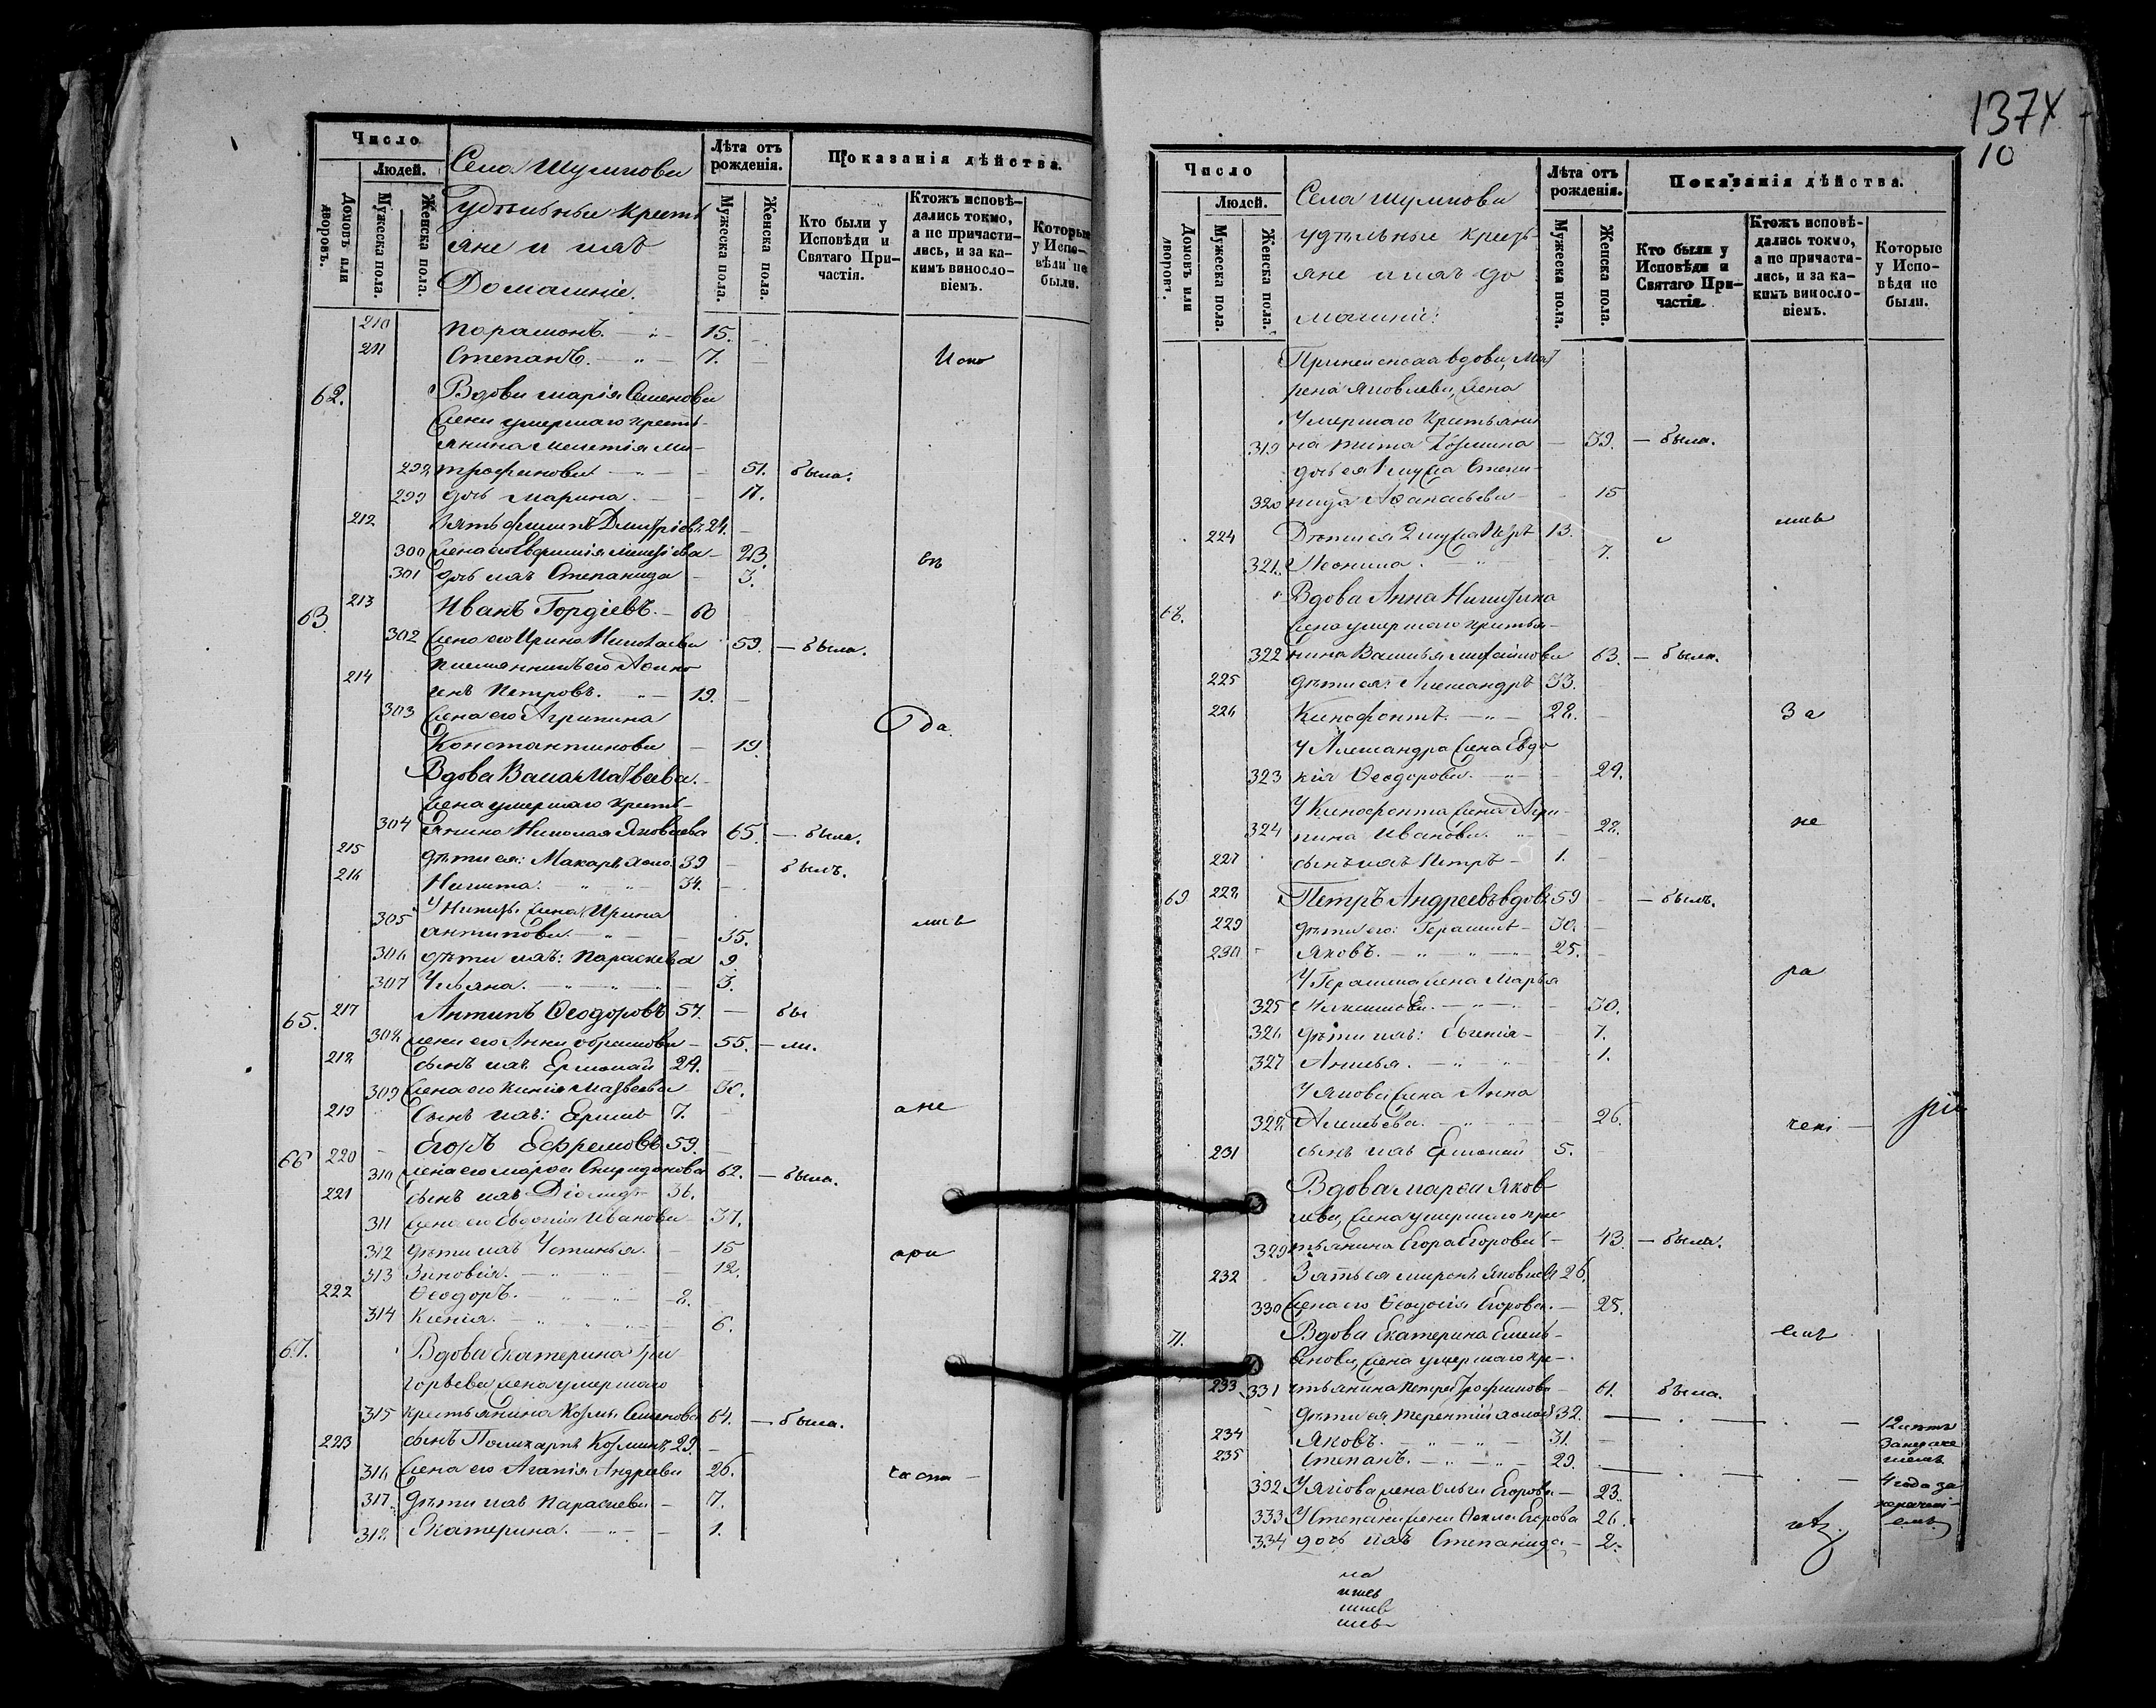 Число
Людей.
Домовъ или дворовъ.
Мужеска пола.
Женска пола.
Села Шумпова
Удѣльные крестъ
яне и ихъ
Домашніе.
Лѣта отъ рожденія.
Мужеска пола.
Женска пола.
Показанія дѣйства.
Кто были у Исповѣди и Святаго При-частія.
Ктожъ исповѣ-дались токмо, а не причасти-лись, и за ка-кимъ виносло-віемъ.
Которые у Испо-вѣди не были.
210 Парамонъ. — „ — 15. —
211 Степанъ. — „ — 7. — Испо
62. Вдова Марія Семенова
жена умершаго кресть-
янина Мелетія Ми-
299 трофанова — „ — 51. была.
299 дочь Марина. — 17.
212 Зять Филипъ Дмитріевъ 24. —
300 жена его Евфимія Мелетіева — 23. вѣ
301 дочь ихъ Степанида — 3.
63. 213 Иванъ Гордіевъ. — 60 —
302 жена его Ирина Николаева 59. — была.
племянникъ его Аѳино
214 генъ Петровъ. „ — 19. —
303 жена его Агрипина
Константинова — 19. Ода
Вдова Васса Матвѣева.
жена умершаго кресть-
304 янина Николая Яковлева 65. — была.
215 дѣти ея: Макаръ холо. 39 — былъ.
216 Никита. — „ — „ — 34. —
У Никиты жена Ирина
305 Антипова. — „ — 35. лись
306 дѣти ихъ: Параскева 9
307 Ульяна. — „ — „ — 3.
65. 217 Антипъ Ѳеодоровъ 57. — бы
308 жена его Анна Абрамова — 55. — ли.
218 сынъ ихъ Ермолай 24.
309 жена его Ксенія Матвѣева 30.
219 Сынъ ихъ: Ермилъ 7. — а не
66 220 Егоръ Ефремовъ 59. —
310 жена его Марѳа Спиридонова 62. — была.
221 сынъ ихъ Діомидъ 36. —
311 жена его Евдокія Иванова 37.
312 дѣти ихъ Устинья. — 15 при
313 Зиновія. — „ — 12.
222 Ѳеодоръ. — „ — 8.
314 Ксенія. — „ — 6.
67. Вдова Екатерина Гри
горьева жена умершаго
315 крестьянина Козмы Семенова 64. — была.
223 сынъ Поликарпъ Козминъ 29. —
316 жена его Агапія Андреева 26. часта —
317. дѣти ихъ Параскева — 7.
318. Екатерина. — „ — 1.
137
10
Число
Людей.
Домовъ или дворовъ.
Мужеска пола.
Женска пола.
Села Шумпова
удѣльные кресть-
яне и ихъ до
машніе:
Лѣта отъ рожденія.
Мужеска пола.
Женска пола.
Показанія дѣйства.
Кто были у Исповѣди и Святаго При-частія.
Ктожъ исповѣ-дались токмо, а не причасти-лись, и за ка-кимъ винословіемъ.
Которые у Испо-вѣди не были.
вдова, Мат
рена Яковлева, жена
умершаго крестьяни
319 на Тита Козмина — 39. — была.
дочь ея 1 мужа Степа-
320 нида Аѳанасьева — 15
224 Дѣти ея 2 мужа Петръ 13. лись
321. Леонила. — „ — 7.
68. Вдова Анна Никитина
жена умершаго крестья-
322 нина Василья Михайлова 63. — была.
225 дѣти ея: Александръ 33. —
226 Ксенофонтъ. — „ — 28. — За
У Александра жена Евдо
323 кія Ѳеодорова. — „ — 29.
У Ксенофонта жена Агри-
324 пина Иванова. „ — 28. не
227 сынъ ихъ Петръ — 1. —
69 228 Петръ Андреевъ вдовъ 59 — — былъ.
229 дѣти его: Герасимъ — 30. —
230 Яковъ. — „ — „ — 25. —
У Герасима жена Марья ра
325 — „ — 30.
326 дѣти ихъ: Евгенія — 7.
327 Анисья. — „ — 1.
У Якова жена Анна
328 Алексѣева. — „ — 26. чені —
231 сынъ ихъ Ермолай 5. —
Вдова Марѳа Яков
лева, жена умершаго кре
329 стьянина Егора Егорова — 43. — была.
232 Зять ея Миронъ Яковлевъ 26.
330 жена его Ѳеодосія Егорова. — 25.
71. Вдова Екатерина Емель- емъ
янова, жена умершаго кре-
233 331 стьянина Петра Трофимова — 61. была.
дѣти ея Терентій холос. 32. — 12 лѣтъ
234 Яковъ. — „ — „ — 31. —
235 Степанъ. — „ — „ — 29. — 4 года за
332 У Якова жена Ольга Егорова. — 23.
333 У Степана жена Ѳекла Егорова 26.
334 дочь ихъ Степанида. — 2.